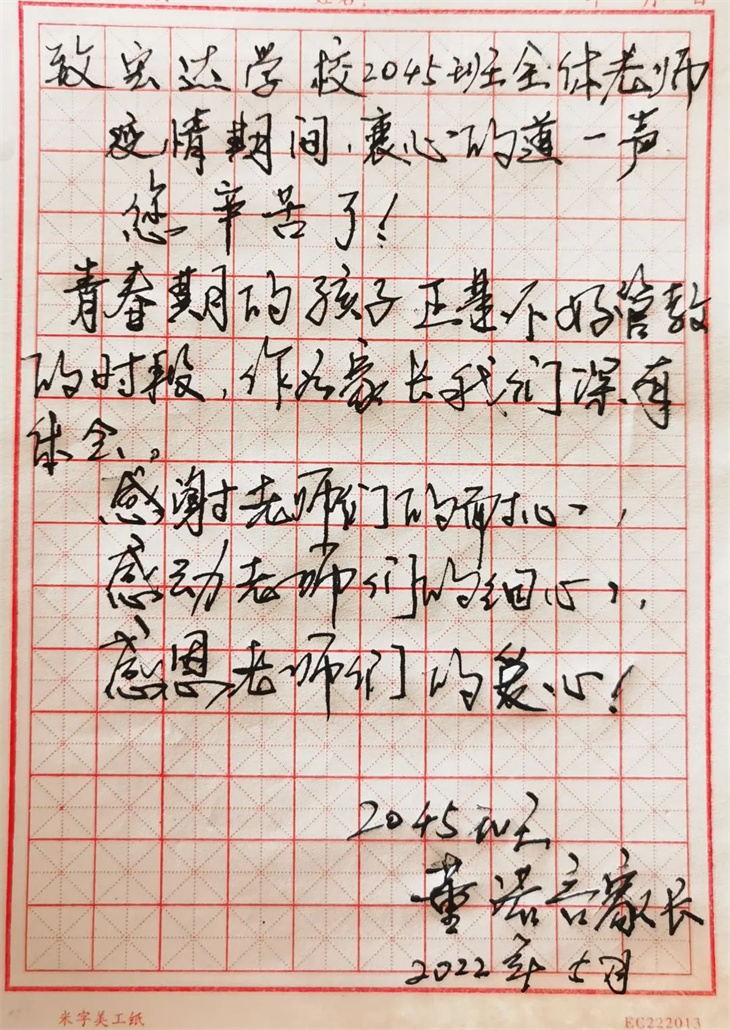 致宏达学校2045班全体老师
疫情期间,衷心的道一声
您辛苦了!
青春期的孩子正是不好管教
的时段,作为家长我们深有
体会。
感谢老师们的耐心,
感动老师们的细心,
感恩老师们的爱心!
2045班
董诺言家长
2022年5月
米字美工纸
EC222013